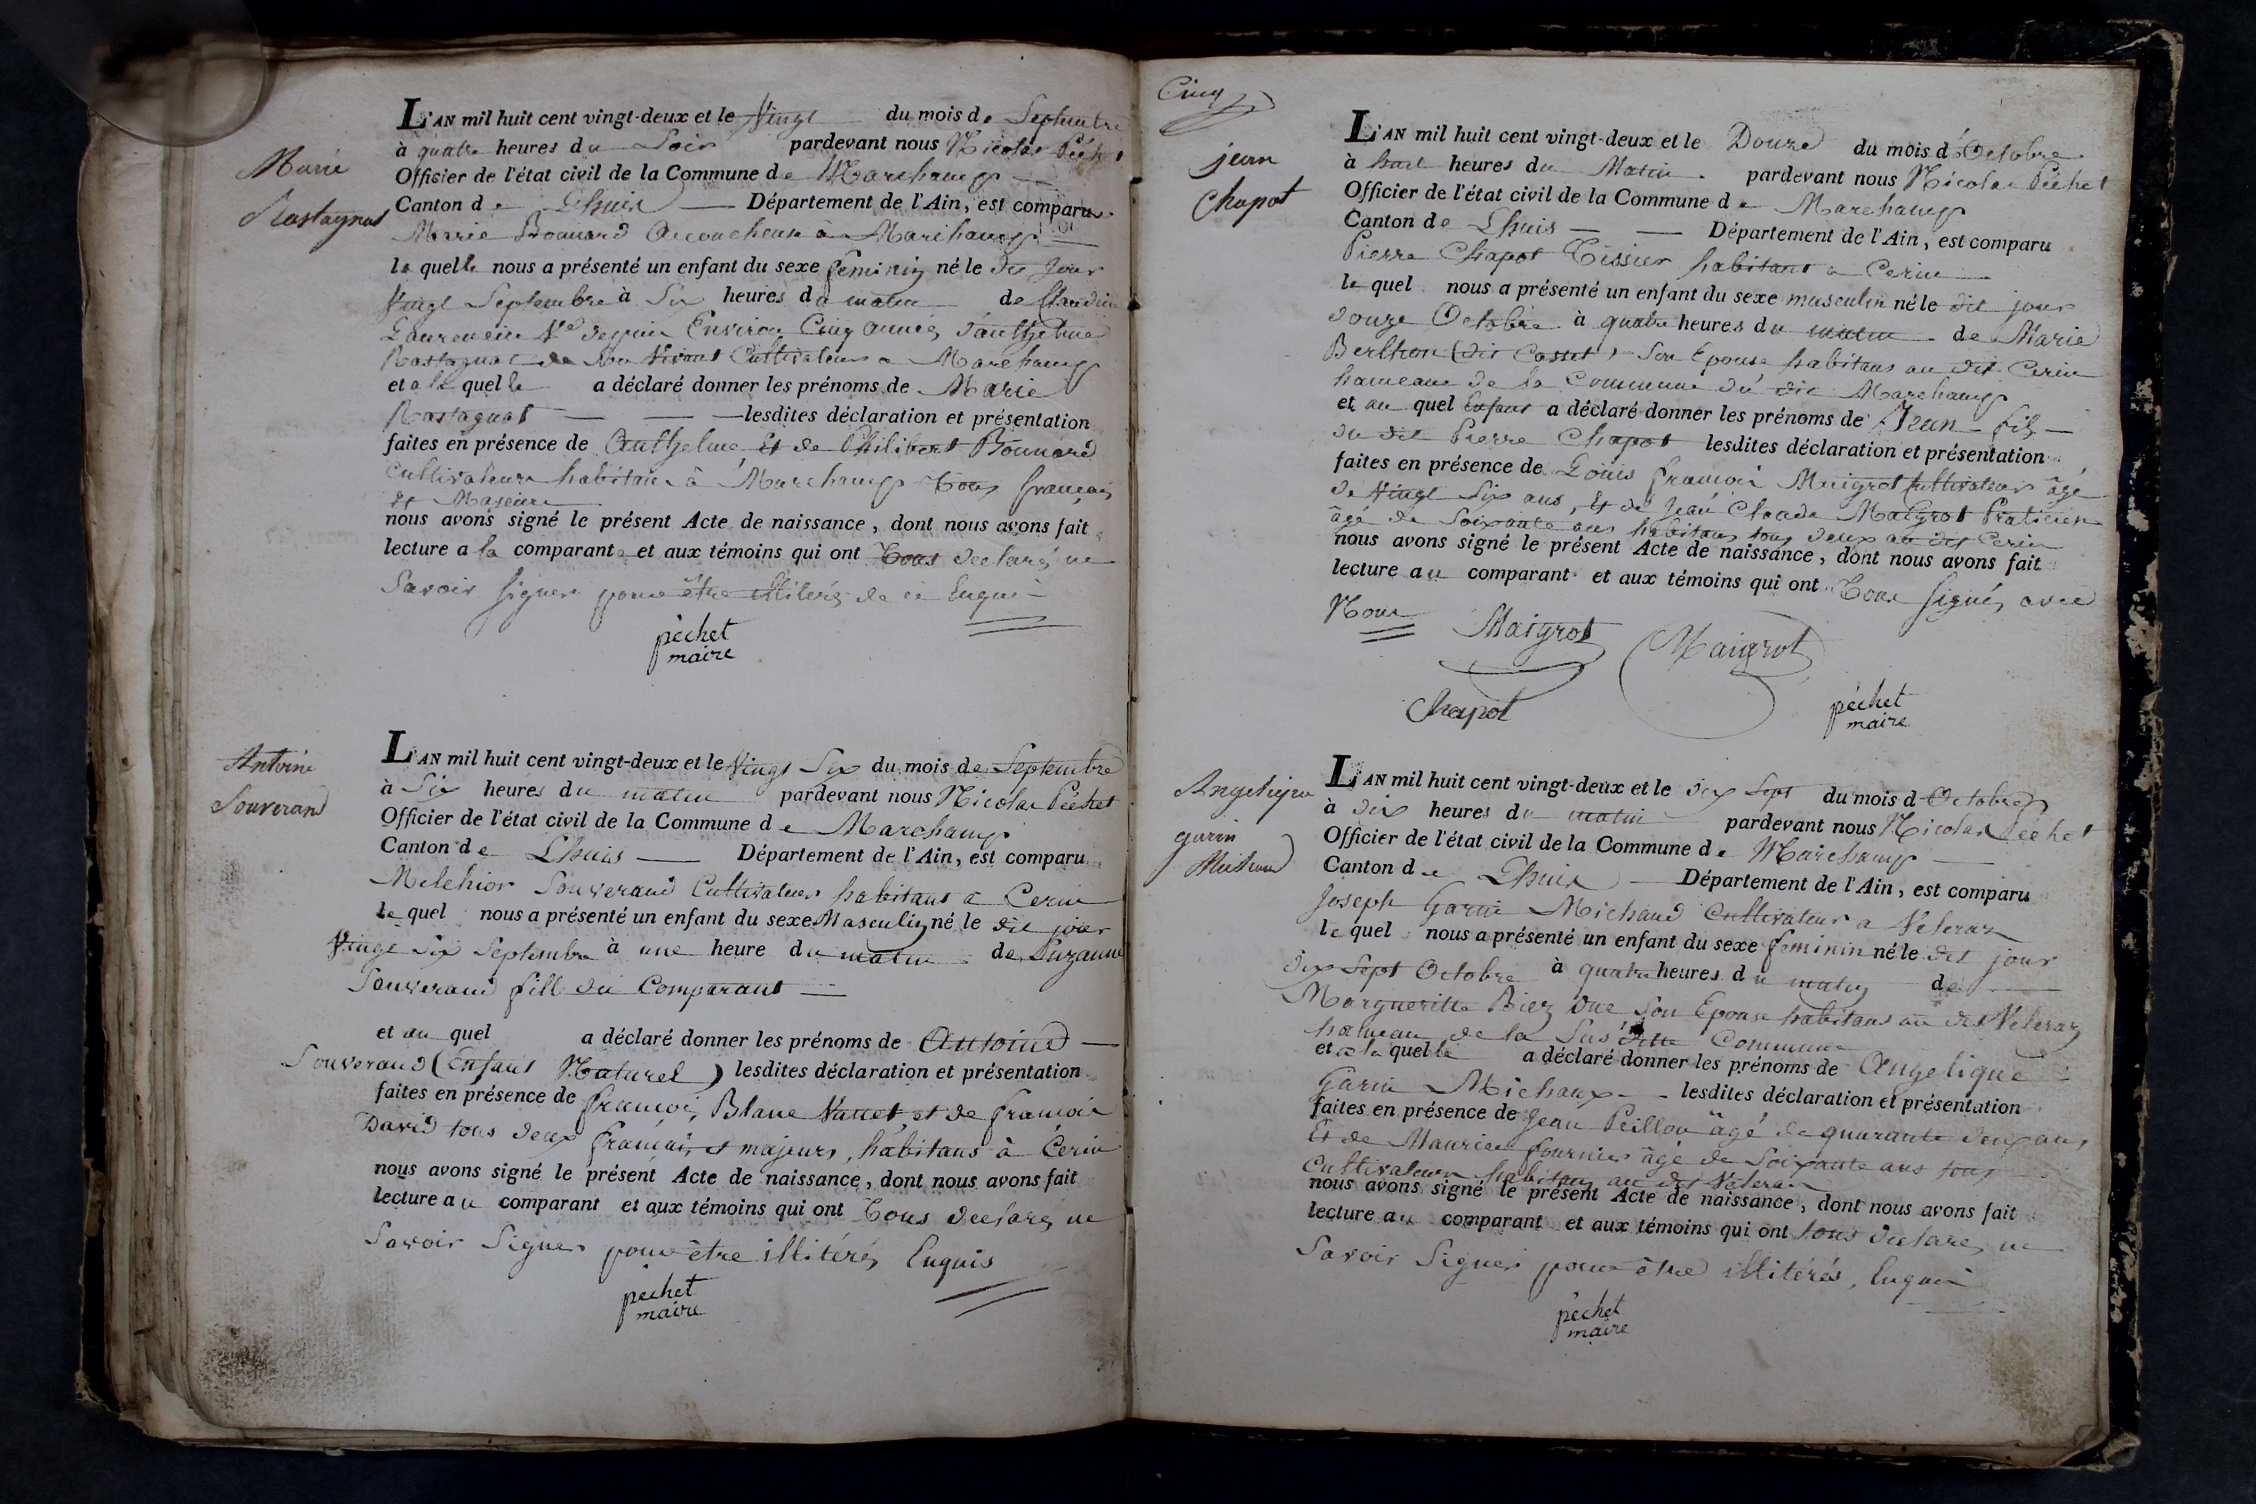 Marie
Rastagnat
L'AN mil huit cent vingt-deux et le Vingt du mois de Septembre
à quatre heures du Soir pardevant nous Nicolas Péchet
Officier de l'état civil de la Commune de Marchamp
Canton de Lhuis Département de l'Ain, est comparu
Marie Bonnard Accoucheuse à Marchamp
la quelle nous a présenté un enfant du sexe féminin né le dit Jour
Vingt Septembre à Six heures du matin de Claudine
Ve depuis Environ Cinq années d'anthelme
Rastagnat de Son Vivant Cultivateur a Marchamp
et a la quelle a déclaré donner les prénoms de Marie
Rastagnat lesdites déclaration et présentation
faites en présence de Anthelme Et de Philibert Bonnard
Cultivateurs habitans à Marchamp tous français
et Majeurs
nous avons signé le présent Acte de naissance, dont nous avons fait
lecture a la comparante et aux témoins qui ont Tous declarés ne
Savoir signer pour être illitérés de ce Enquis
péchet
maire
Antoine
Souverand
L'AN mil huit cent vingt-deux et le Vingt Six du mois de Septembre
à Six heures du matin pardevant nous Nicolas Péchet
Officier de l'état civil de la Commune de Marchamp
Canton de Lhuis Département de l'Ain, est comparu
Melchior Souverand Cultivateur habitant a Cerin
le quel nous a présenté un enfant du sexe Masculin né le dit jour
Vingt Six Septembre à une heure du matin de Suzanne
Souverand fille du Comparant
et au quel a déclaré donner les prénoms de Antoine
Souverand (Enfant Naturel) lesdites déclaration et présentation
faites en présence de françois Blanc et de françois
David tous deux français et majeurs, habitans à Cerin
nous avons signé le présent Acte de naissance, dont nous avons fait
lecture au comparant et aux témoins qui ont Tous declarés ne
Savoir Signer pour être illitérés Enquis
péchet
maire
Cinq
jean
Chapot
L'AN mil huit cent vingt-deux et le Douze du mois d'Octobre
à huit heures du Matin pardevant nous Nicolas Péchet
Officier de l'état civil de la Commune de Marchamp
Canton de Lhuis Département de l'Ain, est comparu
Pierre Chapot Tissier habitant a Cerin
le quel nous a présenté un enfant du sexe masculin né le dit jour
douze Octobre à quatre heures du matin de Marie
Berthon (dit Cosset) Son Epouse habitans au dit Cerin
hameau de la Commune du dit Marchamp
et au quel Enfant a déclaré donner les prénoms de Jean fils
du dit Pierre Chapot lesdites déclaration et présentation
faites en présence de Louis françois Maigrot Cultivateur âgé
de Vingt Six ans, Et de Jean Claude Maigrot Praticien
âgé de Soixante ans habitans tous deux au dit Cerin
nous avons signé le présent Acte de naissance, dont nous avons fait
lecture au comparant et aux témoins qui ont Tous signés avec
Nous
Maigrot Maigrot
Chapot péchet
maire
Angelique
garin
Michaud
L'AN mil huit cent vingt-deux et le dix Sept du mois d Octobre
à dix heures du matin pardevant nous Nicolas Péchet
Officier de l'état civil de la Commune de Marchamp
Canton de Lhuis Département de l'Ain, est comparu
Joseph Garin Michaud Cultivateur a Veleraz
le quel nous a présenté un enfant du sexe féminin né le dit jour
dix Sept Octobre à quatre heures du matin de
Margueritte Son Epouse habitans au dit Veleraz
hameau de la Sus ditte Commune
et a la quelle a déclaré donner les prénoms de Angelique
Garin Michaux lesdites déclaration et présentation
faites en présence de Jean Peillon âgé de quarante deux ans
Et de Maurice fournier âgé de Soixante ans tous
Cultivateurs habitans au dit Veleraz
nous avons signé le présent Acte de naissance, dont nous avons fait
lecture au comparant et aux témoins qui ont tous declarés ne
Savoir Signer pour être illitérés, Enquis
péchet
maire